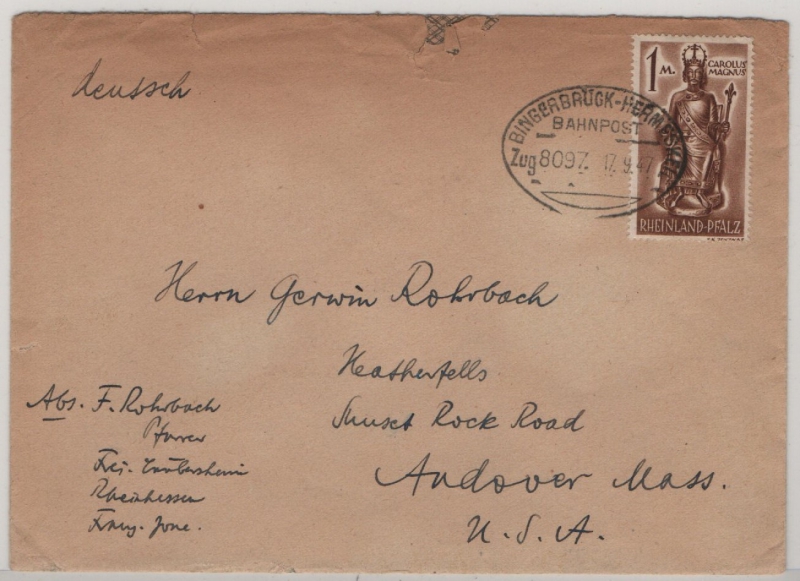 deutsch
1 M.
CAROLUS
MAGNUS
RHEINLAND-PFALZ
BINGERBRÜCK-HERMESKEIL
BAHNPOST
Zug 8097 17.9.47
Herrn Gerwin Rohrbach
Heatherfells
Sunset Rock Road
Andover Mass.
U.S.A.
Abs. F. Rohrbach
Pfarrer
Rheinhessen
Franz. Zone.